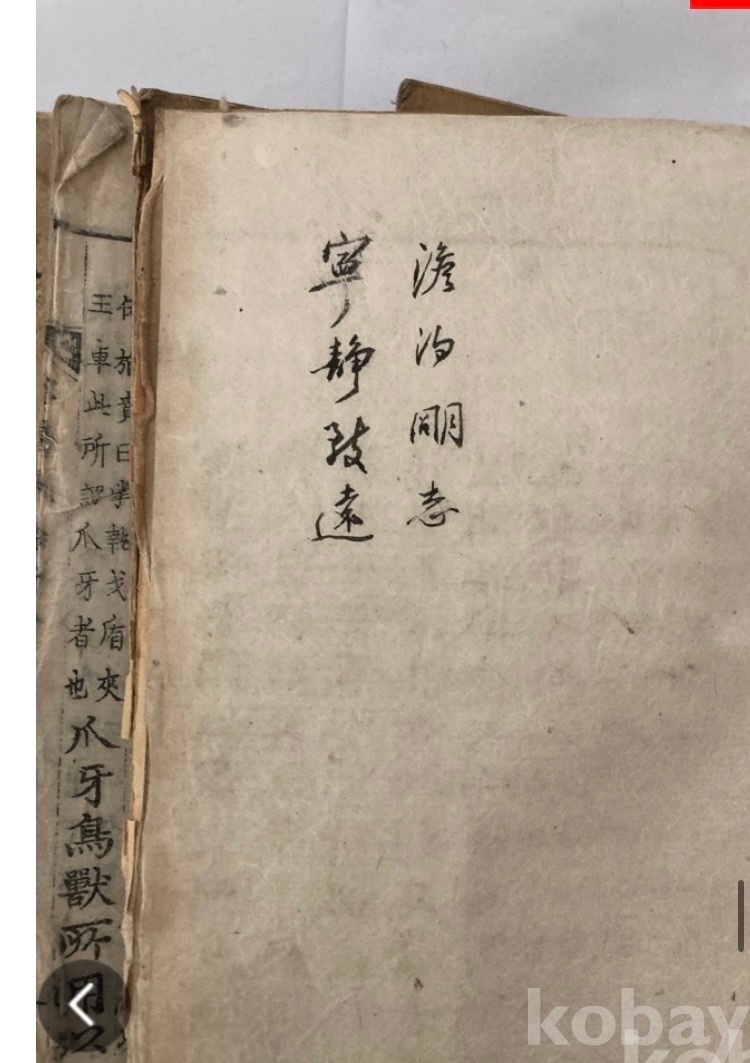 澹泊明志
寧靜致遠
夾
盾
戈
執
掌
曰
賁
王車此所謂爪牙者也
爪牙鳥獸所用以
kobay